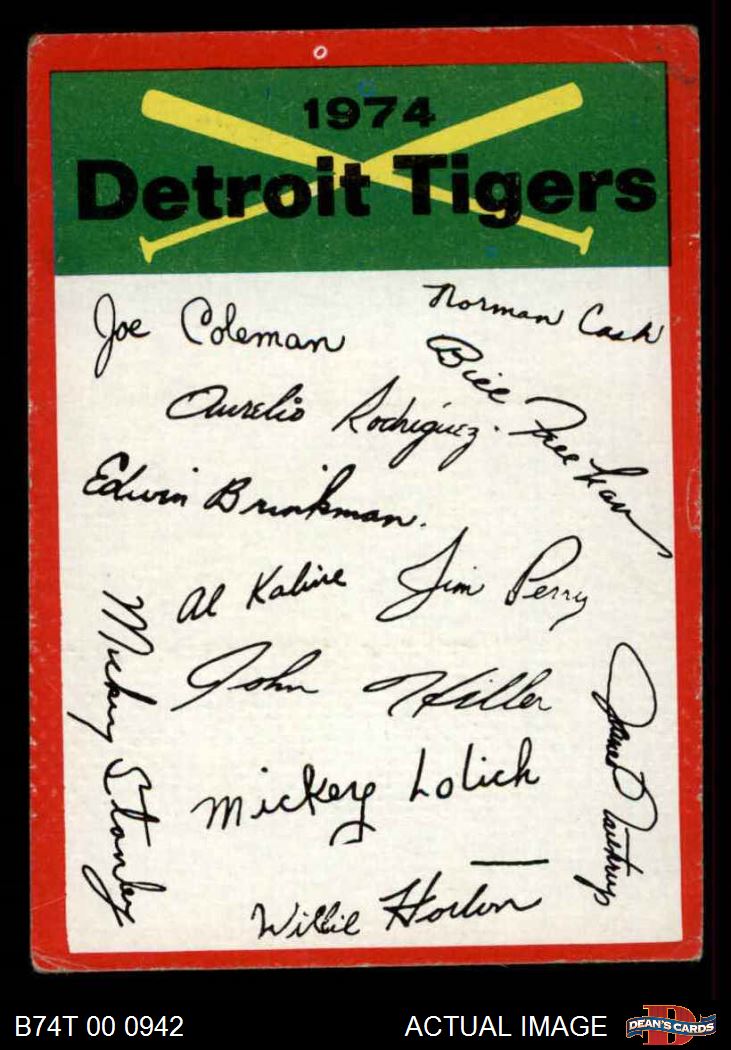 1974
Detroit Tigers
Joe Coleman
Norman Cash
Bill Freehan
Aurelio Rodriguez.
Edwin Brinkman.
Al Kaline
Jim Perry
Mickey Stanley
John Hiller
James Northrup
Mickey Lolich
Willie Horton
B74T 00 0942
ACTUAL IMAGE
DEAN'S CARDS